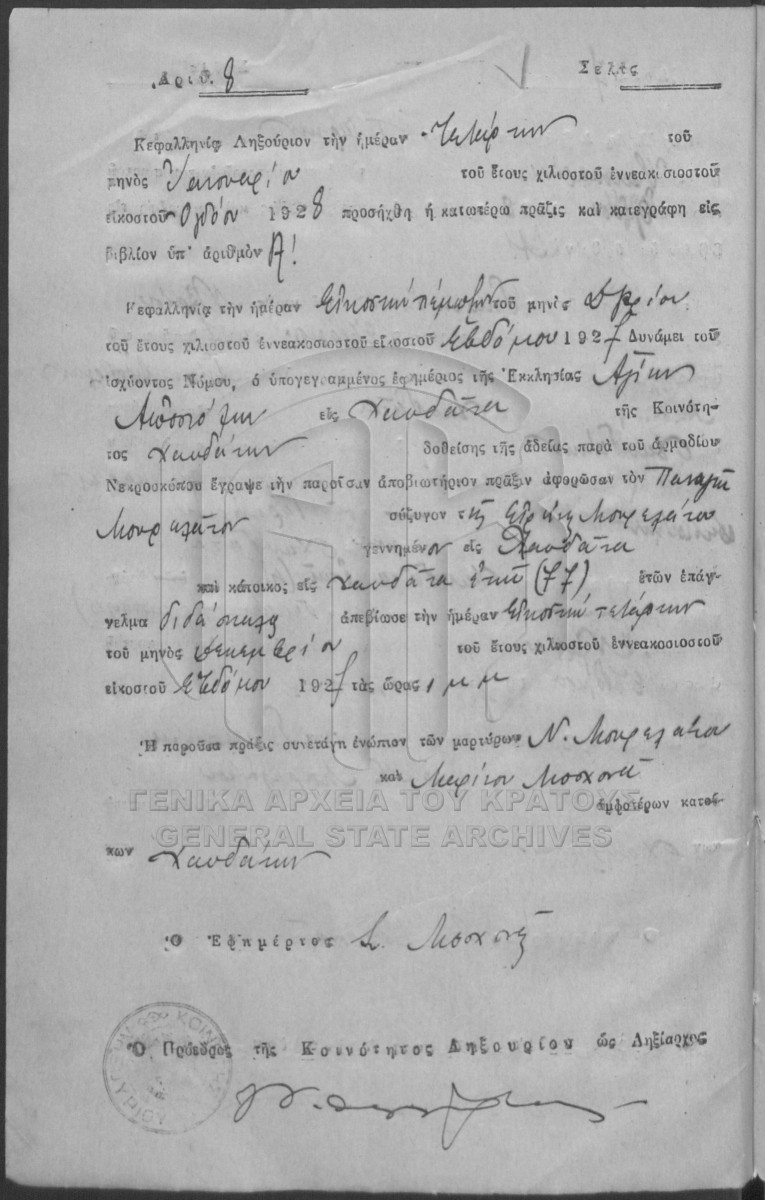 Ἀριθ. 8
Σελὶς
Κεφαλληνίᾳ Ληξούριον τὴν ἡμέραν Τετάρτην τοῦ
μηνὸς Ἰανουαρίου τοῦ ἔτους χιλιοστοῦ ἐννεακοσιοστοῦ
εἰκοστοῦ Ὀγδόου 1928 προσήχθη ἡ κατωτέρω πρᾶξις καὶ κατεγράφη εἰς
βιβλίον ὑπ' ἀριθμὸν
Κεφαλληνίᾳ τὴν ἡμέραν Εἰκοστὴν πέμπτην τοῦ μηνὸς Δβρίου
τοῦ ἔτους χιλιοστοῦ ἐννεακοσιοστοῦ εἰκοστοῦ Ἑβδόμου 1927 Δυνάμει τοῦ
ἰσχύοντος Νόμου, ὁ ὑπογεγραμμένος ἐφημέριος τῆς Ἐκκλησίας Ἁγίων
Ἀποστόλων εἰς Χαυδάτα τῆς Κοινότη-
τος Χαυδάτων δοθείσης τῆς ἀδείας παρὰ τοῦ ἁρμοδίου
Νεκροσκόπου ἔγραψε τὴν παροῦσαν ἀποβιωτήριον πρᾶξιν ἀφορῶσαν τὸν Παναγῆ
Μουρελάτον σύζυγον τῆς Εἰρήνης Μουρελάτου
γεννημένον εἰς Χαυδάτα
καὶ κάτοικος εἰς Χαυδάτα ἐτῶν (77) ἐτῶν ἐπάγ-
γελμα διδάσκαλος ἀπεβίωσε τὴν ἡμέραν Εἰκοστὴν τετάρτην
τοῦ μηνὸς Δεκεμβρίου τοῦ ἔτους χιλιοστοῦ ἐννεακοσιοστοῦ
εἰκοστοῦ Ἑβδόμου 1927 τὰς ὥρας 1 μ μ
Ἡ παροῦσα πρᾶξις συνετάγη ἐνώπιον τῶν μαρτύρων Ν. Μουρελάτου
καὶ Μαρίνου Μοσχονᾶ
ΓΕΝΙΚΑ ΑΡΧΕΙΑ ΤΟΥ ΚΡΑΤΟΥΣ
ἀμφοτέρων κατοί-
GENERAL STATE ARCHIVES
κων Χαυδάτων
Ὁ Ἐφημέριος Σ. Μοσχονᾶς
Ὁ Πρόεδρος τῆς Κοινότητος Ληξουρίου ὡς Ληξίαρχος